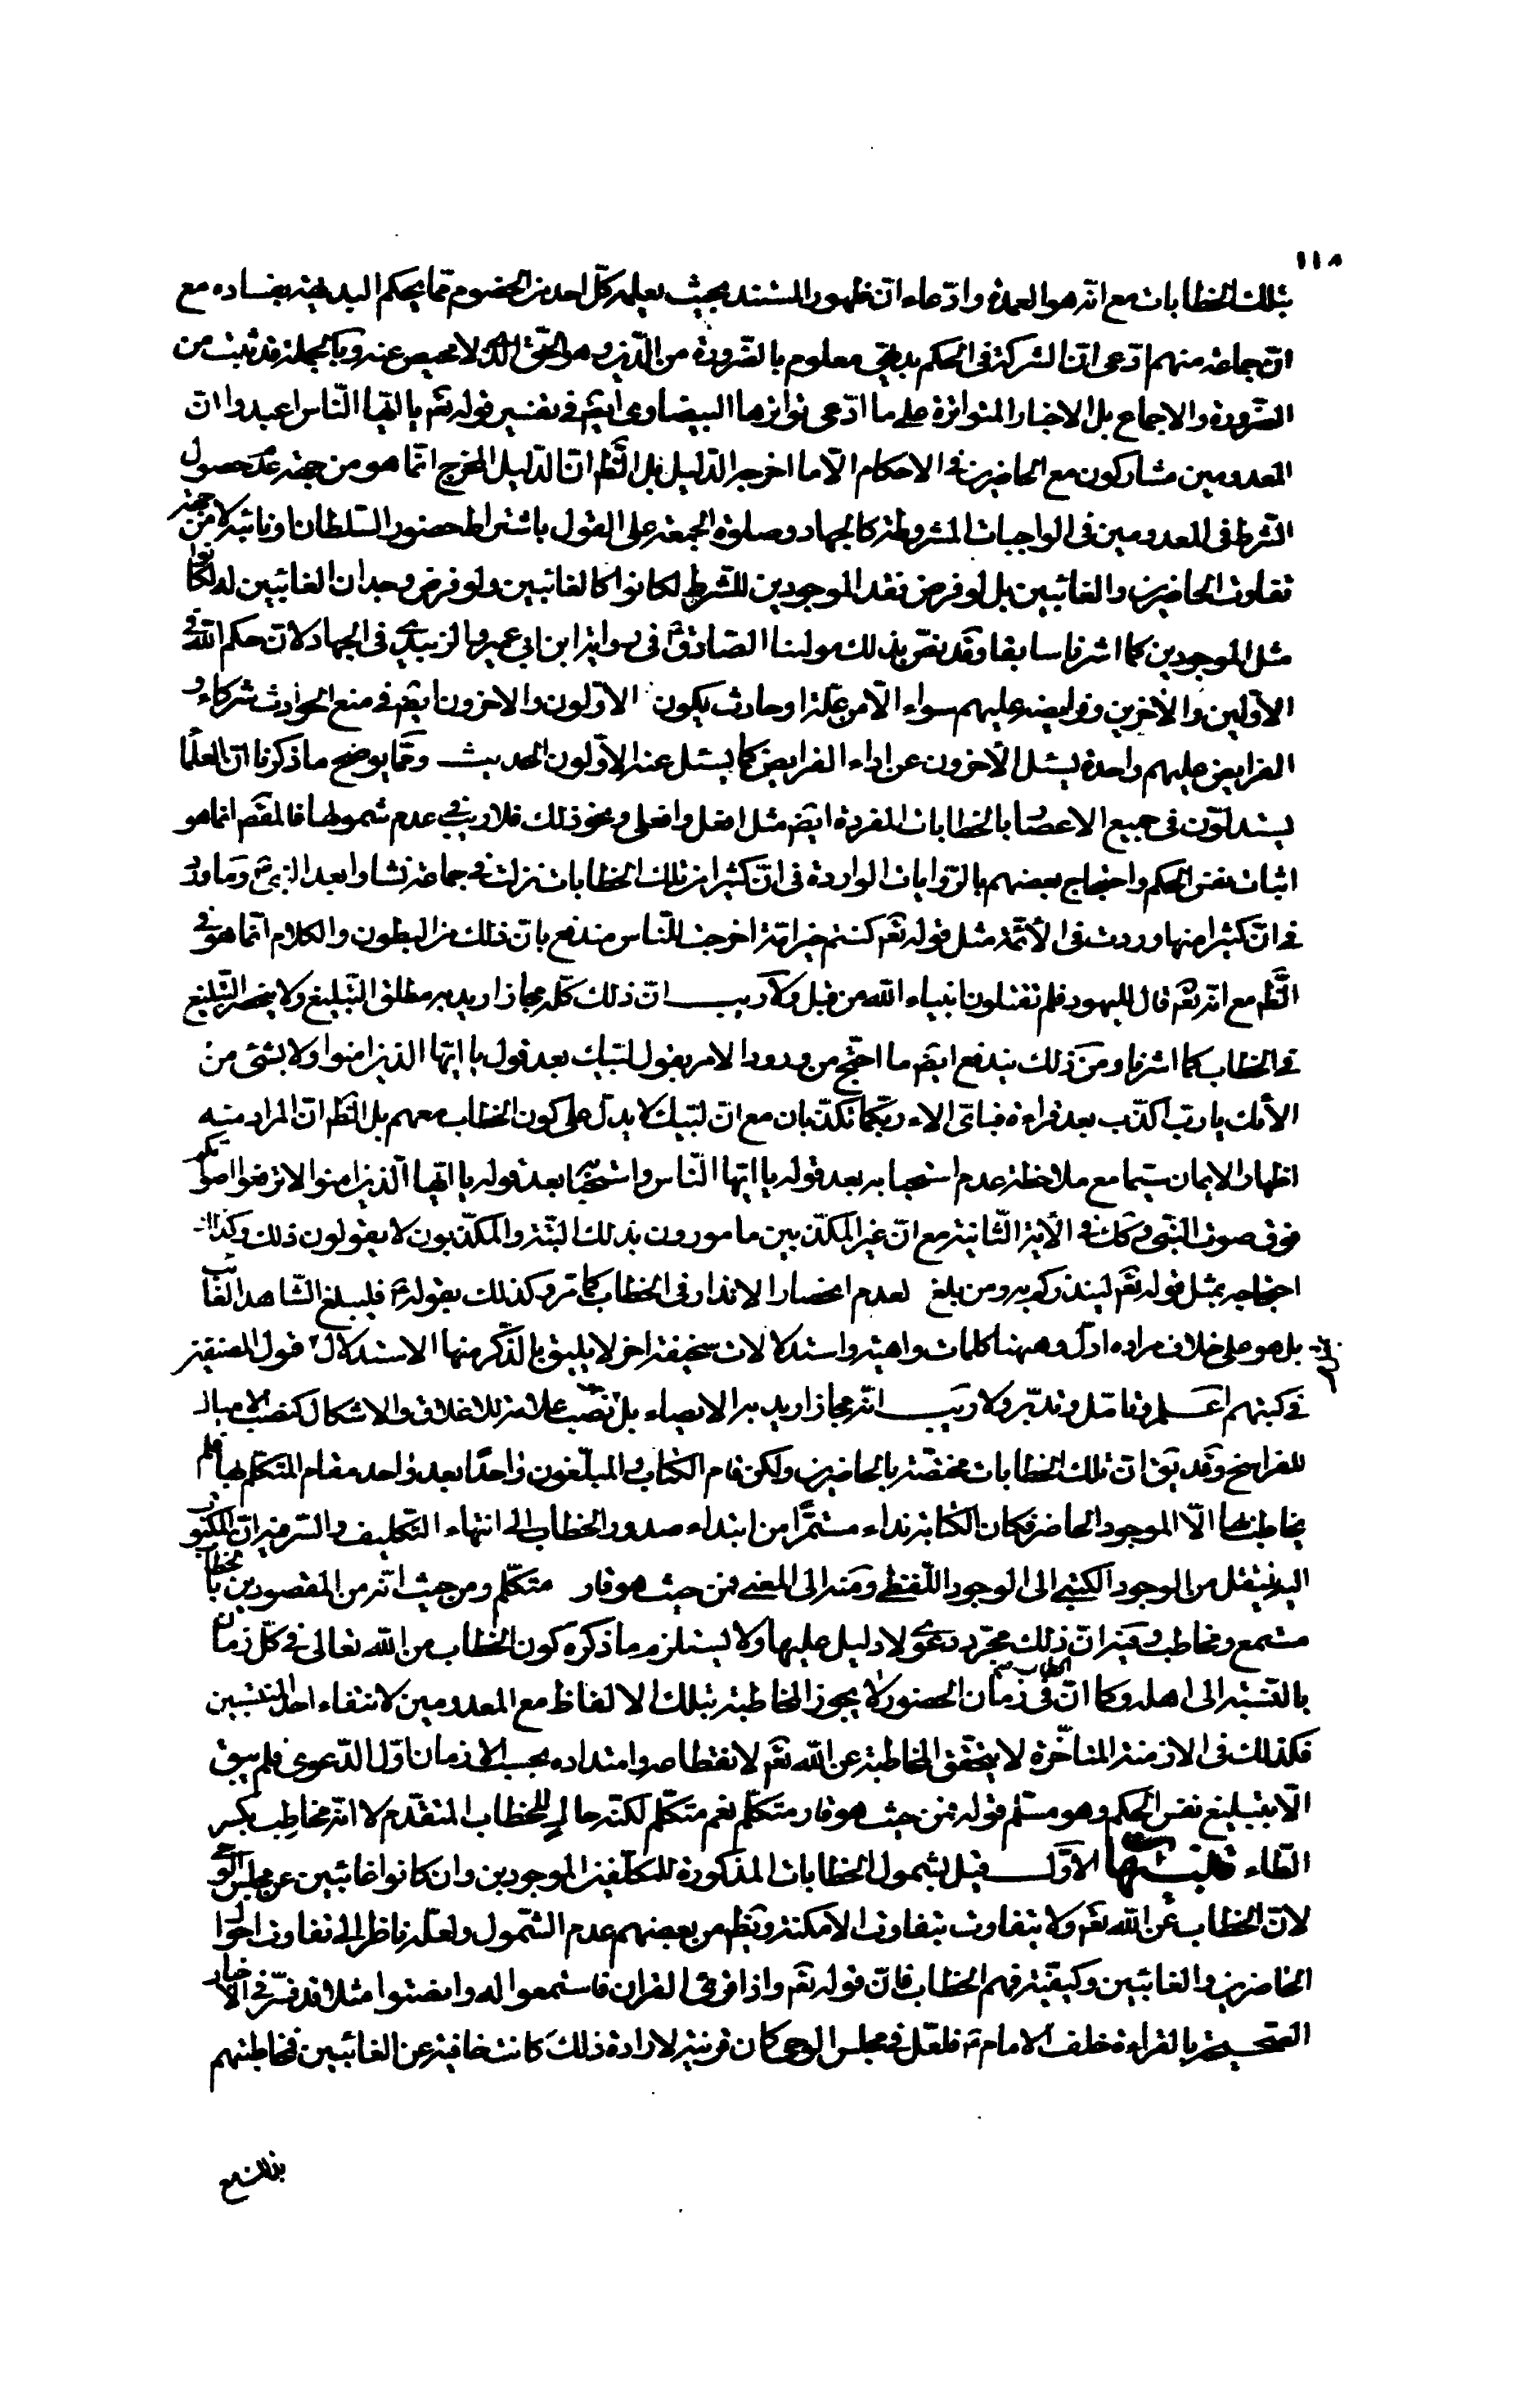 ١١٨
بتلك الخطابات مع انّه هو العمدة وادّعاء انّ ظهور المستند بحيث يعلمه كلّ احد من الخصوم ممّا يحكم البديهة بفساده مع
انّ جماعة منهم ادّعى انّ الشركة في الحكم بديهيّ معلوم بالضّرورة من الدّين وهو الحقّ الّذي لا محيص عنه وبالجملة قد ثبت من
الضّرورة والاجماع بل الاخبار المتواترة على ما ادّعى تواترها البيضاوي ايضم في تفسير قوله تعم يا ايّها النّاس اعبدوا انّ
المعدومين مشاركون مع الحاضرين في الاحكام الّا ما اخرجه الدّليل بل الظّم انّ الدّليل المخرج انّما هو من جهة عدم حصول
الشّرط في المعدومين في الواجبات المشروطة كالجهاد وصلوة الجمعة على القول باشتراط حضور السّلطان او نائبه لا من جهة
تفاوت الحاضرين والغائبين بل لو فرض فقد الموجودين للشّرط لكانوا كالغائبين ولو فرض وجدان الغائبين له لكانوا
مثل الموجودين كما اشرنا سابقا وقد نصّ بذلك مولينا الصّادق ع في رواية ابن ابي عمير والزبيدي في الجهاد لانّ حكم اللّه في
الاوّلين والاخرين وفرايضه عليهم سواء الّا من علّة او حادث يكون الاوّلون والاخرون ايضم في منع الحوادث شركاء و
الفرايض عليهم واحدة يسئل الاخرون عن اداء الفرايض كما يسئل عنه الاوّلون الحديث وممّا يوضح ما ذكرنا انّ العلما
يستدلّون في جميع الاعصا بالخطابات المفردة ايضم مثل افعل وافعلي ونحو ذلك فلا ريب في عدم شمولها فالمقصم انما هو
اثبات نفس الحكم واحتجاج بعضهم بالرّوايات الواردة في انّ كثيرا من تلك الخطابات نزلت في جماعة نشاوا بعد النبيّ ص وما ورد
في انّ كثيرا منها وردت في الائمّة مثل قوله تعم كنتم خير امّة اخرجت للنّاس مندفع بانّ ذلك من البطون والكلام انّما هو في
الظّم مع انّه تعم قال لليهود فلم تقتلون انبياء اللّه من قبل ولا ريب انّ ذلك كلّه مجاز اريد به مطلق التّبليغ ولا ينحصر التّبليغ
في الخطاب كما اشرنا ومن ذلك يندفع ايضم ما احتجّ من ورود الامر بقول لبّيك بعد قول يا ايّها الذين امنوا ولا بشيء من
الآئك يا ربّ اكذّب بعد قراءة فباىّ الاء ربّكما تكذّبان مع انّ لبّيك لا يدلّ على كون الخطاب معهم بل الظّم انّ المراد منه
اظهار الايمان سيّما مع ملاحظة عدم استحبابه بعد قوله يا ايّها النّاس واستحبابه بعد قوله يا ايّها الّذين امنوا لا ترفعوا اصواتكم
فوق صوت النّبيّ وكك في الاية الثّانية مع انّ غير المكذّبين مامورون بذلك البتّة والمكذّبون لا يقولون ذلك وكذا
احتجاجه بمثل قوله تعم لينذركم به ومن بلغ لعدم انحصار الانذار في الخطاب كما مرّ وكذلك بقوله ص فليبلغ الشّاهد الغائب
بل هو على خلاف مراده ادلّ وههنا كلمات واهية واستدلالات سخيفة اخر لا يليق بالذّكر منها الاستدلال بقول المصنّفين
في كتبهم اعلم وتامّل وتدبّر ولا ريب انّه مجاز اريد به الايصاء بل نصب علامة للاغلاق والاشكال كنصب الاميال
للفراسخ وقد يقم انّ تلك الخطابات مختصّة بالحاضرين ولكن قام الكتاب والمبلّغون واحدًا بعد واحد مقام المتكلّم بها فلم
يخاطب بها الّا الموجود الحاضر فكان الكتابة نداء مستمرًّا من ابتداء صدور الخطاب الى انتهاء التّكليف والسّر فيه انّ المكتوب
اليه ينتقل من الوجود الكتبي الى الوجود اللّفظي ومنه الى المعنى فمن حيث هو قار متكلّم ومن حيث انّه من المقصودين بالخطاب
مستمع ومخاطب وفيه انّ ذلك مجرّد دعوى لا دليل عليها ولا يستلزم ما ذكره كون الخطاب من اللّه تعالى في كلّ زمان
بالنّسبة الى اهله وكما انّ في زمان الحضور لا يجوز المخاطبة بتلك الالفاظ مع المعدومين لانتفاء احد المنتسبين
فكذلك في الازمنة المتاخّرة لا يتحقّق المخاطبة عن اللّه تعم لانقطاعه وامتداده بحسب الازمان اوّل الدّعوى فلم يبق
الّا تبليغ نفس الحكم وهو مسلّم قوله فمن حيث هو قار متكلّم نعم متكلّم لكنّه حاكٍ للخطاب المتقدّم لا انّه مخاطِب بكسر
الطّاء تنبيهات الاوّل قيل بشمول الخطابات المذكورة للمكلّفين الموجودين وان كانوا غائبين عن مجلس الوحي
لانّ الخطاب عن اللّه تعم ولا يتفاوت بتفاوت الامكنة ويظهر من بعضهم عدم الشّمول ولعلّه ناظر الى تفاوت احوال
الحاضرين والغائبين وكيفيّة فهم الخطاب فانّ قوله تعم واذا قرئ القران فاستمعوا له وانصتوا مثلا قد فسّر في الاخبار
الصّحيحة بالقراءة خلف الامام ع فلعلّ في مجلس الوحي كان قرينة لارادة ذلك كانت خافية عن الغائبين فخاطبتهم
بذلك مع